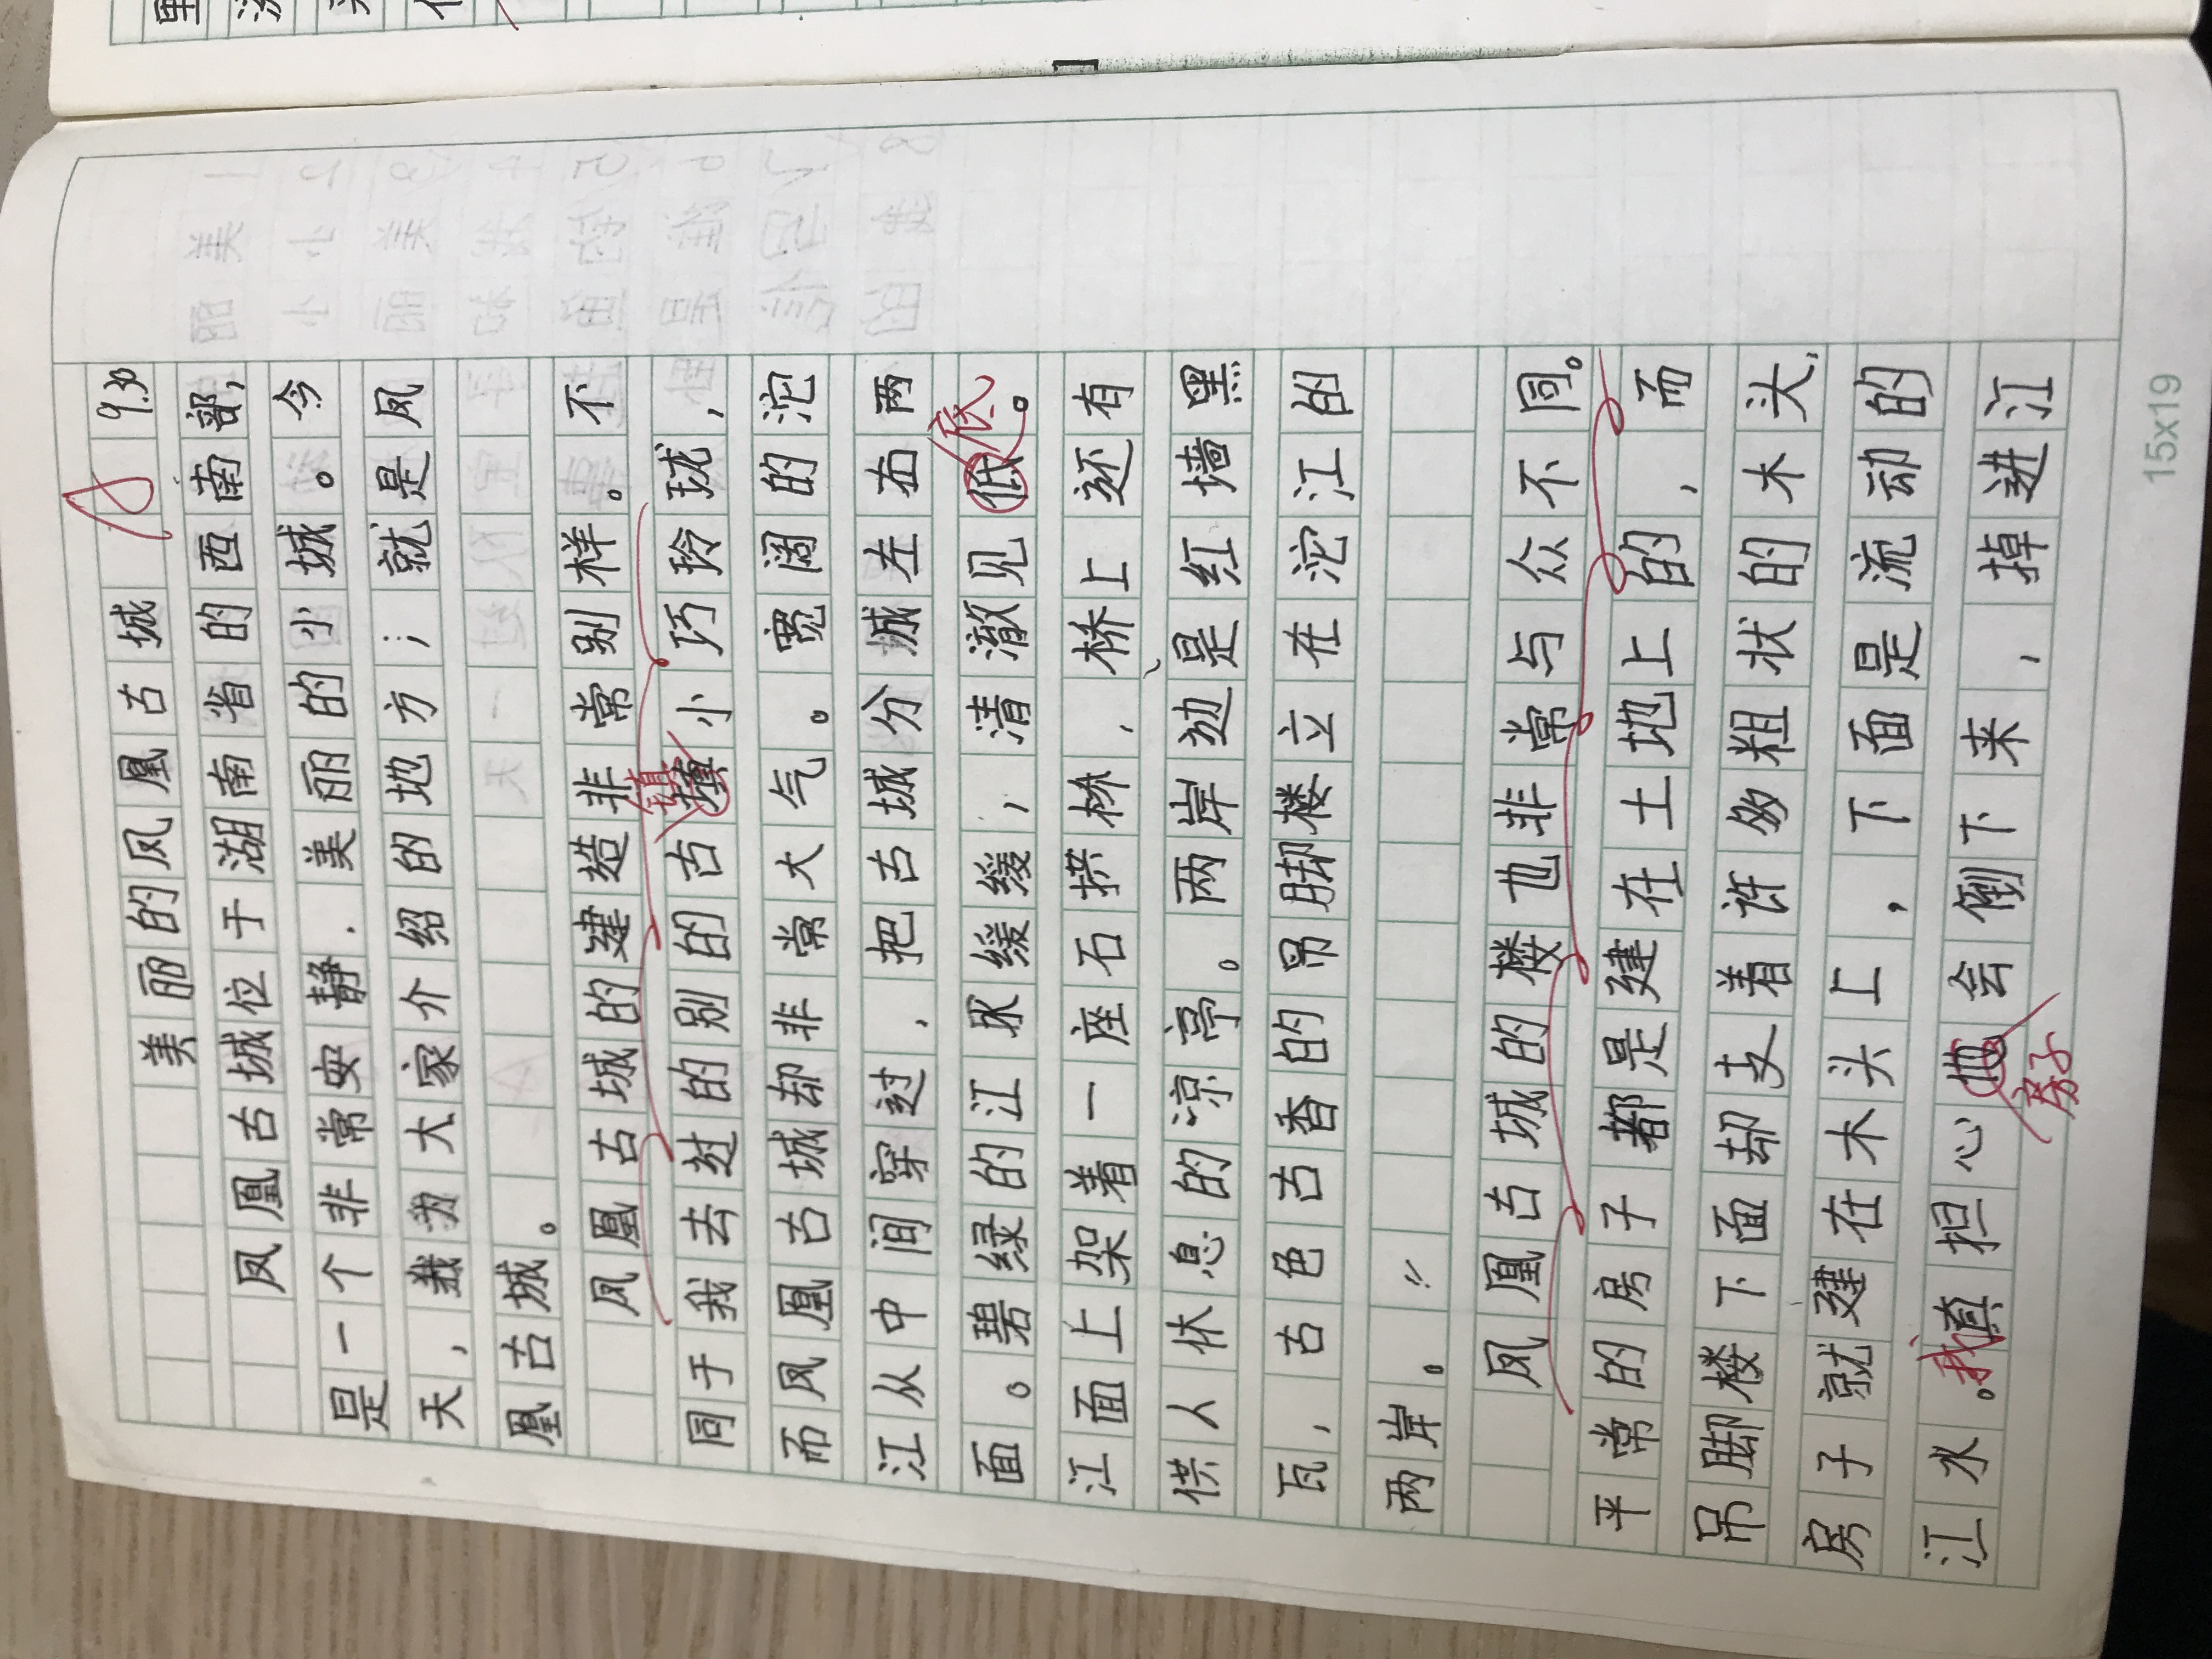 美丽的凤凰古城 A 9.30
凤凰古城位于湖南省的西南部,
是一个非常安静.美丽的小城。今
天,我为大家介绍的地方;就是凤
凰古城。
凤凰古城的建造非常别样。不
镇
同于我去过的别的古填小巧玲珑,
而凤凰古城却非常大气。宽阔的沱
江从中间穿过,把古城分城左右两
底
面。碧绿的江水缓缓,清澈见低。
江面上架着一座石拱桥,桥上还有
供人休息的凉亭。两岸边是红墙黑
瓦,古色古香的吊脚楼立在沱江的
两岸。
凤凰古城的楼也非常与众不同。
平常的房子都是建在土地上的,而
吊脚楼下面却支着许多粗状的木头,
房子就建在木头上,下面是流动的
江水。我真担心地会倒下来,掉进江
房子
15x19